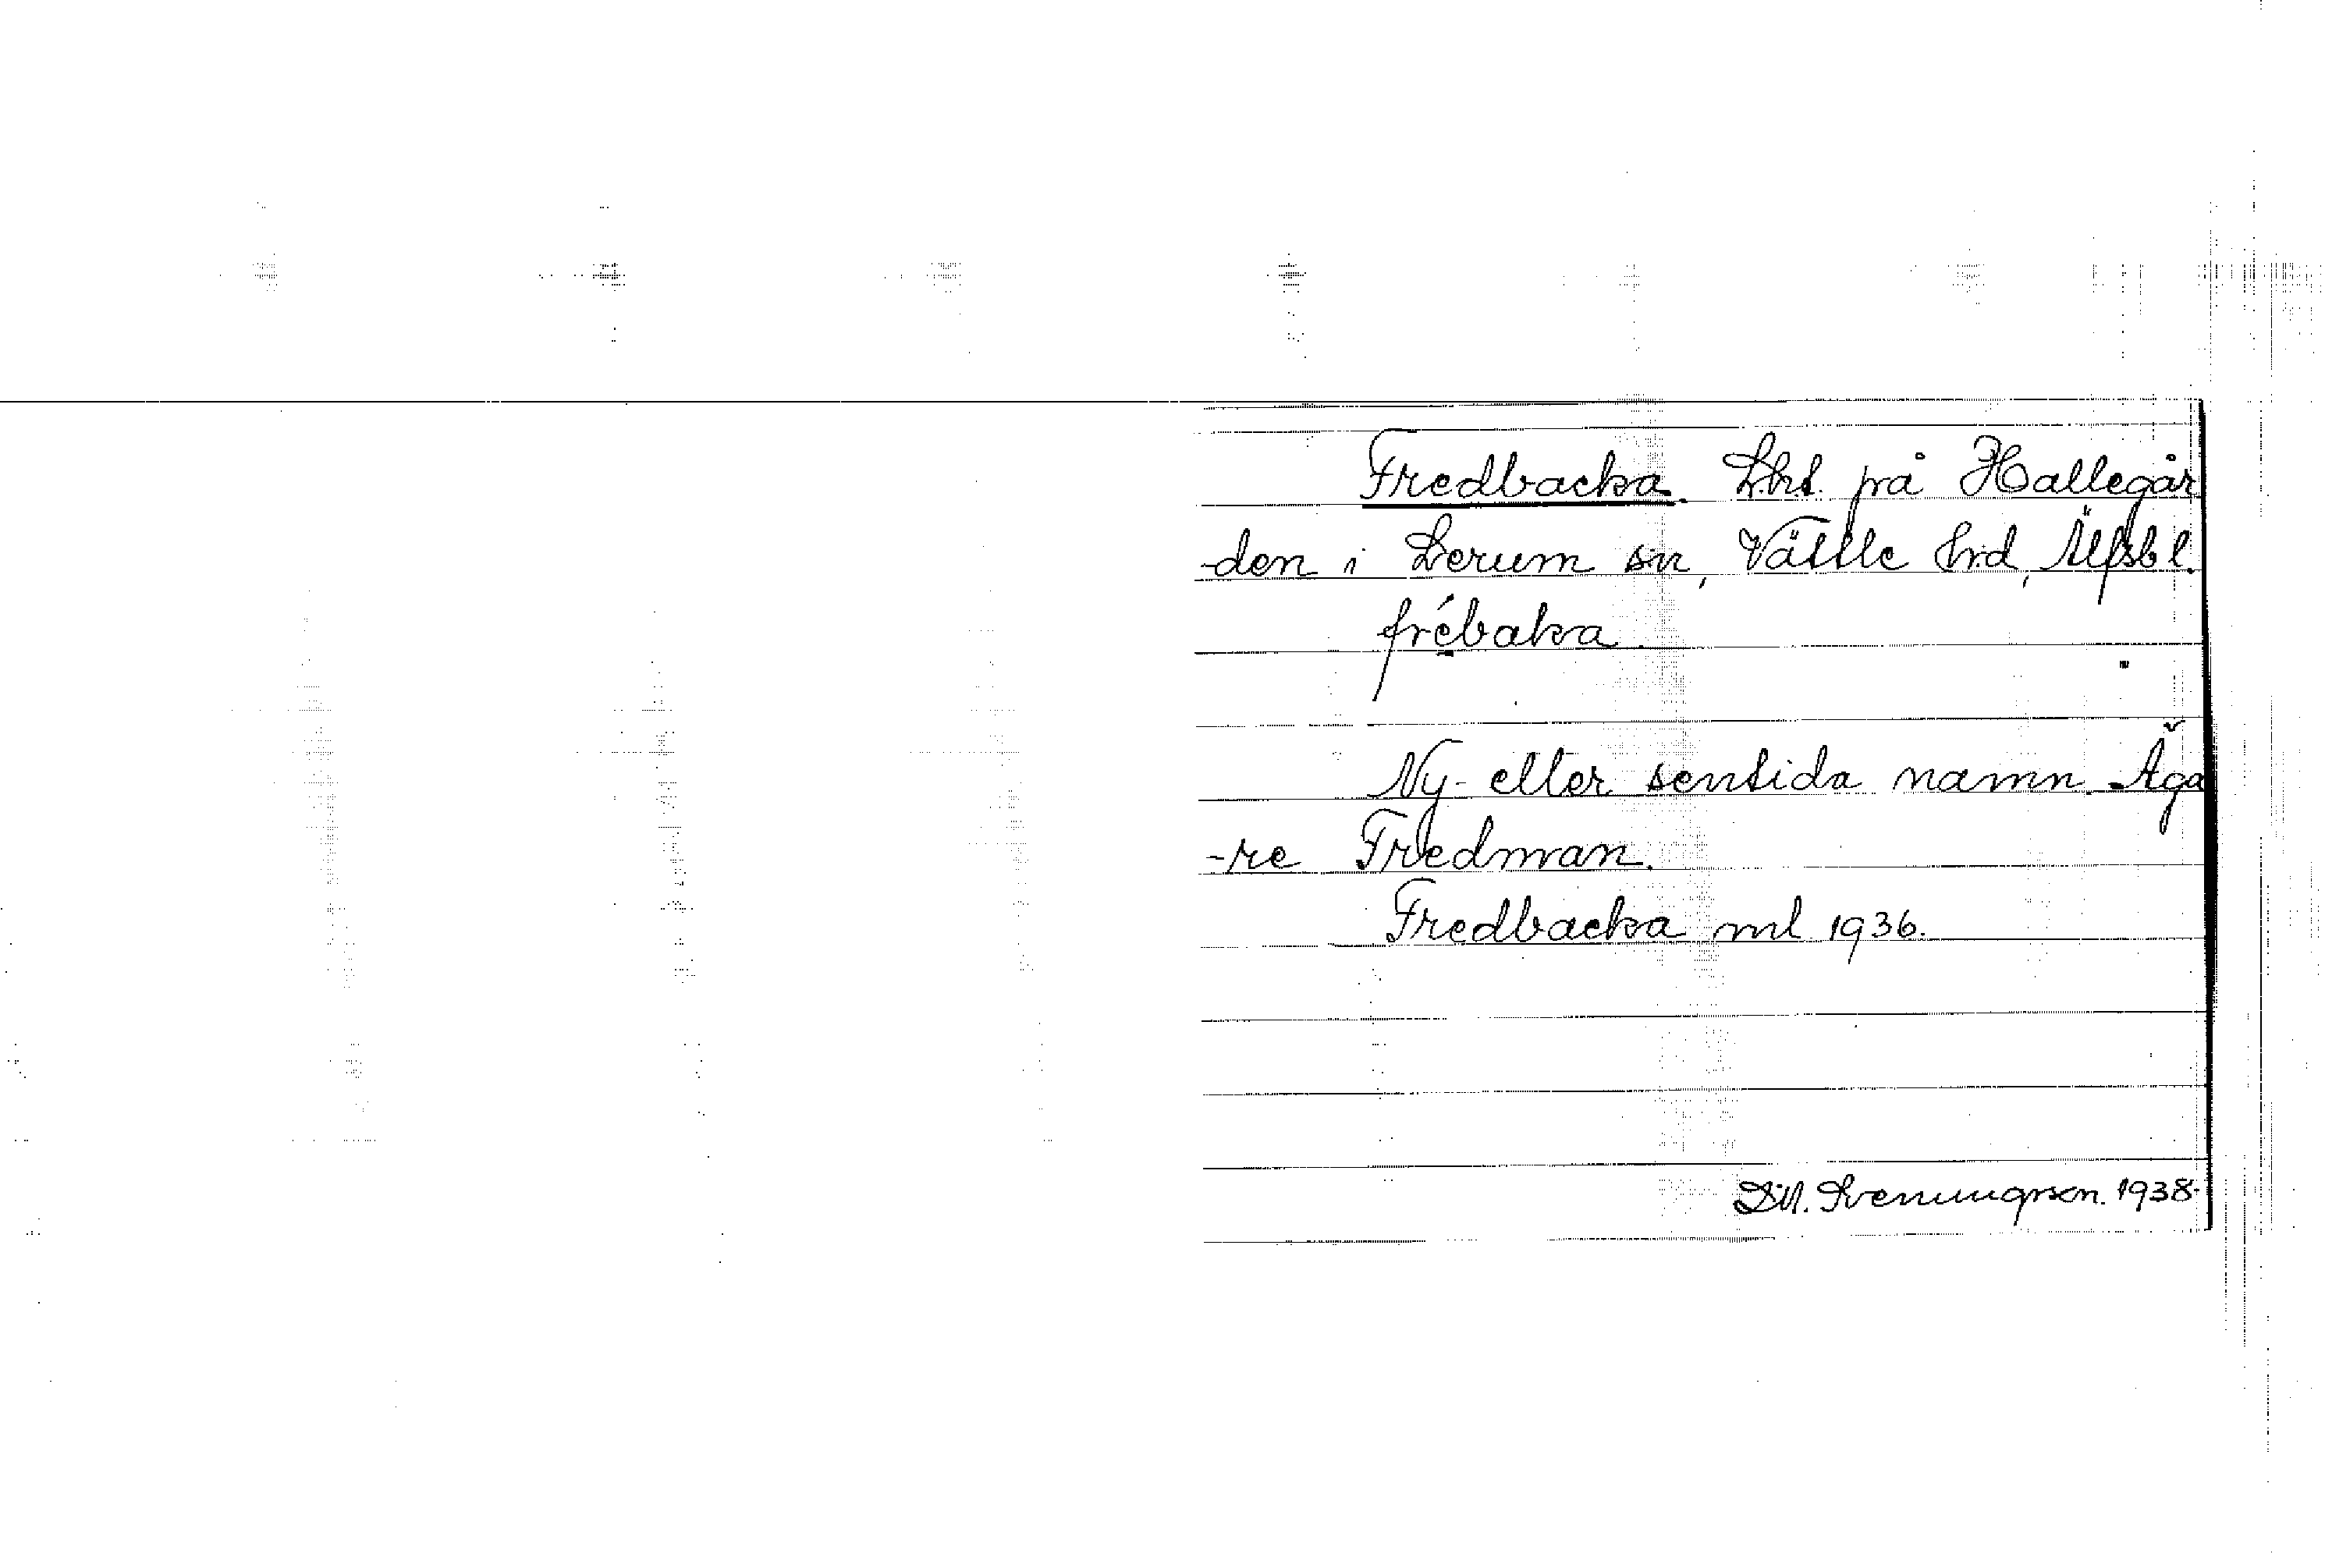 Fredbacka. Lht. på Hallegår
-den i Lerum sn, Vättle hrd, Älfsb l.
frébaka.
Ny- eller sentida namn. Äga
-re Fredman.
Fredbacka ml 1936.
Sveningson. 1938.